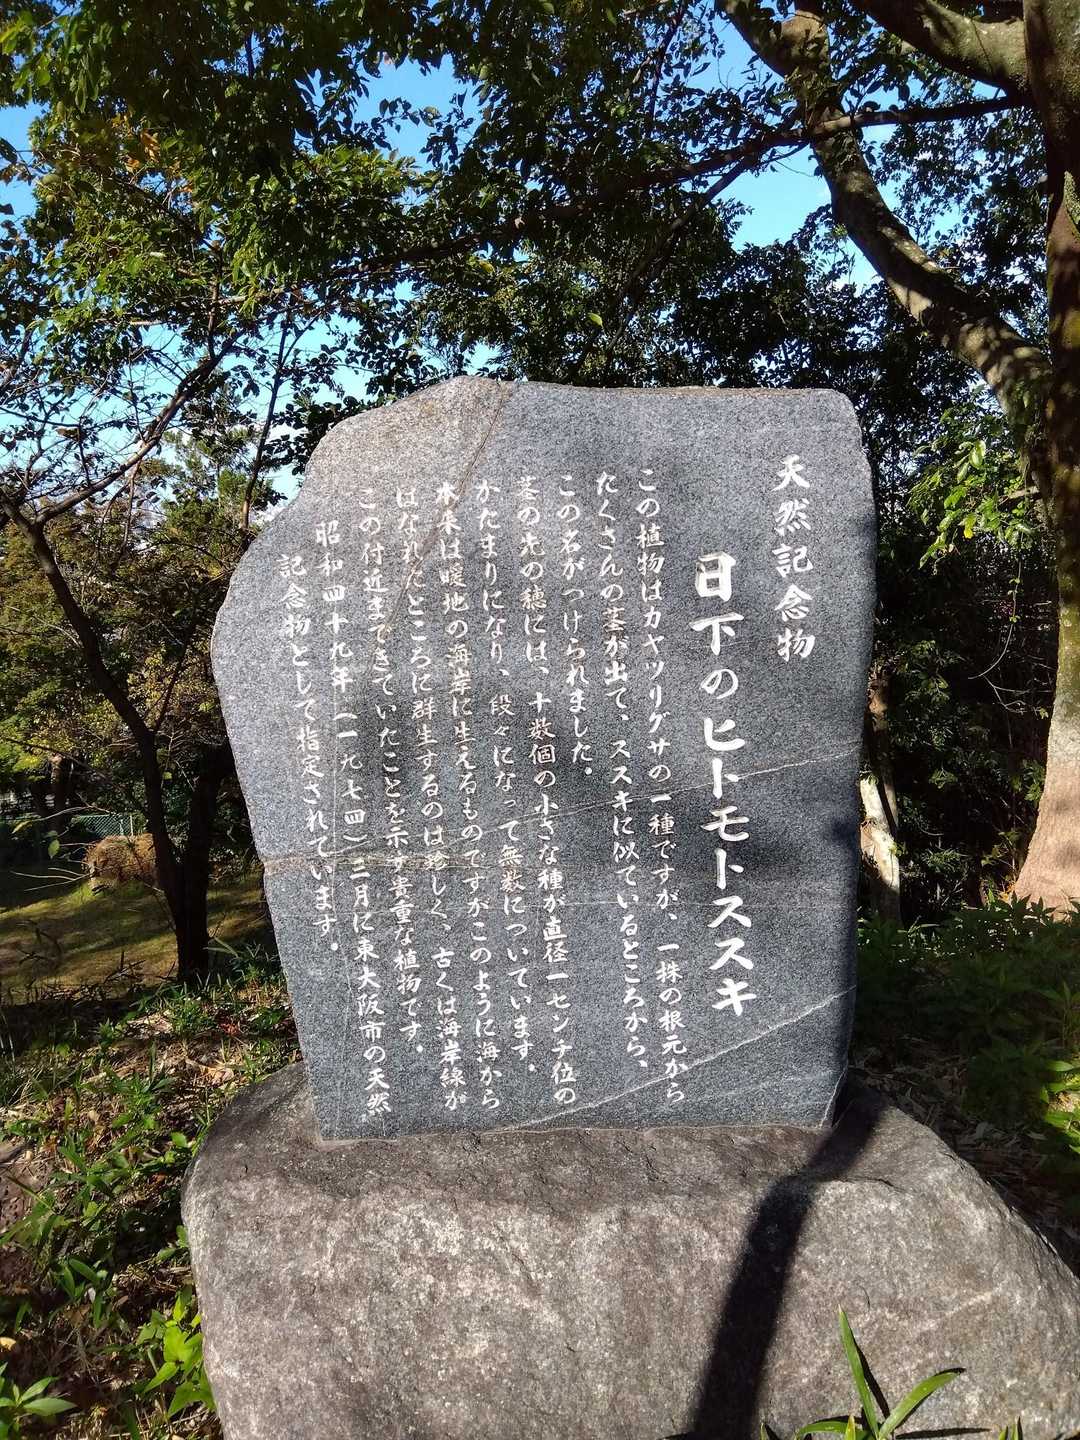 天然記念物
日下のヒトモトススキ
この植物はカヤツリグサの一種ですが、一株の根元から
たくさんの茎が出て、ススキに似ているところから、
この名がつけられました。
茎の先の穂には、十数個の小さな種が直径一センチ位の
かたまりになり、段々になって無数についています。
本来は暖地の海岸に生えるものですがこのように海から
はなれたところに群生するのは珍しく、古くは海岸線が
この付近まできていたことを示す貴重な植物です。
昭和四十九年(一九七四)三月に東大阪市の天然
記念物として指定されています。